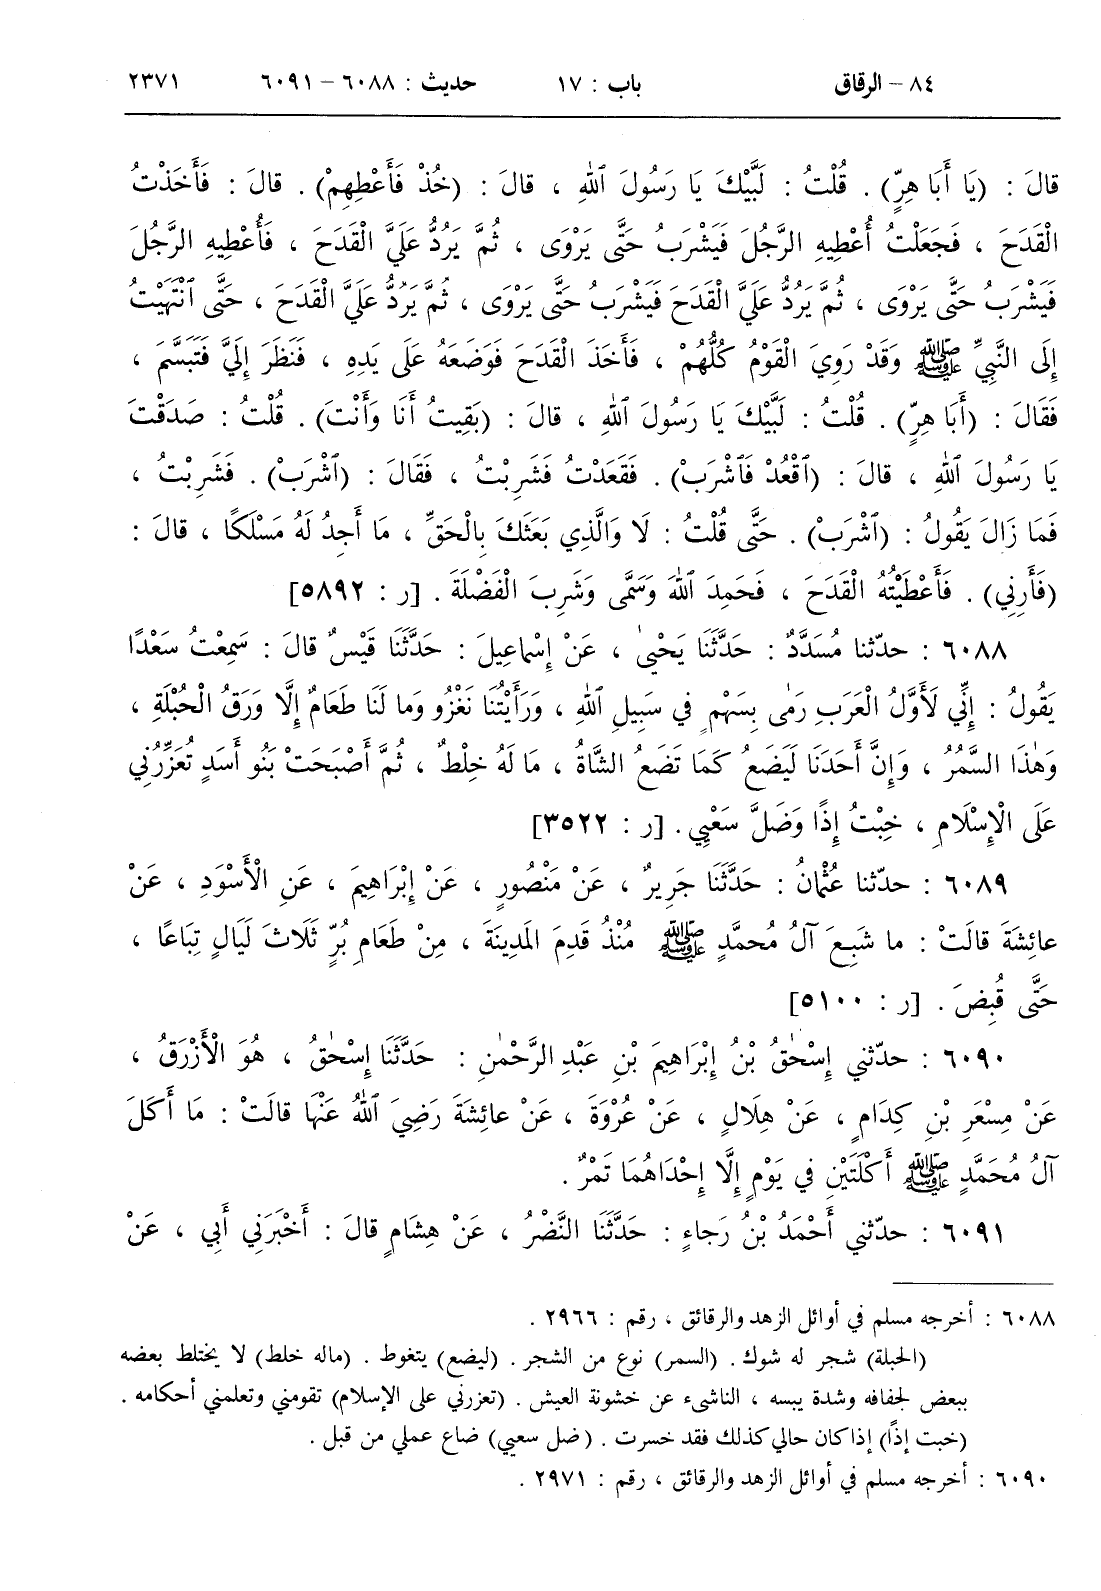 ٨٤ – الرقاق باب : ١٧ حديث : ٦٠٨٨ – ٦٠٩١ ٢٣٧١
قالَ : (يَا أَبَا هِرٍّ) . قُلْتُ : لَبَّيْكَ يَا رَسُولَ ٱللهِ ، قالَ : (خُذْ فَأَعْطِهِمْ) . قالَ : فَأَخَذْتُ
الْقَدَحَ ، فَجَعَلْتُ أُعْطِيهِ الرَّجُلَ فَيَشْرَبُ حَتَّى يَرْوَى ، ثُمَّ يَرُدُّ عَلَيَّ الْقَدَحَ ، فَأُعْطِيهِ الرَّجُلَ
فَيَشْرَبُ حَتَّى يَرْوَى ، ثُمَّ يَرُدُّ عَلَيَّ الْقَدَحَ فَيَشْرَبُ حَتَّى يَرْوَى ، ثُمَّ يَرُدُّ عَلَيَّ الْقَدَحَ ، حَتَّى ٱنْتَهَيْتُ
إِلَى النَّبِيِّ ﷺ وَقَدْ رَوِيَ الْقَوْمُ كُلُّهُمْ ، فَأَخَذَ الْقَدَحَ فَوَضَعَهُ عَلَى يَدِهِ ، فَنَظَرَ إِلَيَّ فَتَبَسَّمَ ،
فَقَالَ : (أَبَا هِرٍّ) . قُلْتُ : لَبَّيْكَ يَا رَسُولَ ٱللهِ ، قالَ : (بَقِيتُ أَنَا وَأَنْتَ) . قُلْتُ : صَدَقْتَ
يَا رَسُولَ ٱللهِ ، قالَ : (ٱقْعُدْ فَٱشْرَبْ) . فَقَعَدْتُ فَشَرِبْتُ ، فَقَالَ : (ٱشْرَبْ) . فَشَرِبْتُ ،
فَمَا زَالَ يَقُولُ : (ٱشْرَبْ) . حَتَّى قُلْتُ : لَا وَالَّذِي بَعَثَكَ بِالْحَقِّ ، مَا أَجِدُ لَهُ مَسْلَكًا ، قالَ :
(فَأَرِنِي) . فَأَعْطَيْتُهُ الْقَدَحَ ، فَحَمِدَ ٱللهَ وَسَمَّى وَشَرِبَ الْفَضْلَةَ . [ر : ٥٨٩٢]
٦٠٨٨ : حدّثنا مُسَدَّدٌ : حَدَّثَنَا يَحْيىٰ ، عَنْ إِسْماعِيلَ : حَدَّثَنَا قَيْسٌ قالَ : سَمِعْتُ سَعْدًا
يَقُولُ : إِنِّي لَأَوَّلُ الْعَرَبِ رَمٰى بِسَهْمٍ في سَبِيلِ ٱللهِ ، وَرَأَيْتُنَا نَغْزُو وَما لَنَا طَعَامٌ إِلَّا وَرَقُ الْحُبْلَةِ ،
وَهٰذَا السَّمُرُ ، وَإِنَّ أَحَدَنَا لَيَضَعُ كَمَا تَضَعُ الشَّاةُ ، مَا لَهُ خِلْطٌ ، ثُمَّ أَصْبَحَتْ بَنُو أَسَدٍ تُعَزِّرُنِي
عَلَى الْإِسْلَامِ ، خِبْتُ إِذًا وَضَلَّ سَعْيِي . [ر : ٣٥٢٢]
٦٠٨٩ : حدّثنا عُثْمانُ : حَدَّثَنَا جَرِيرٌ ، عَنْ مَنْصُورٍ ، عَنْ إِبْرَاهِيمَ ، عَنِ الْأَسْوَدِ ، عَنْ
عائِشَةَ قالَتْ : ما شَبِعَ آلُ مُحمَّدٍ ﷺ مُنْذُ قَدِمَ المَدِينَةَ ، مِنْ طَعَامِ بُرٍّ ثَلَاثَ لَيَالٍ تِبَاعًا ،
حَتَّى قُبِضَ . [ر : ٥١٠٠]
٦٠٩٠ : حدّثني إِسْحٰقُ بْنُ إِبْرَاهِيمَ بْنِ عَبْدِ الرَّحْمٰنِ : حَدَّثَنَا إِسْحٰقُ ، هُوَ الْأَزْرَقُ ،
عَنْ مِسْعَرِ بْنِ كِدَامٍ ، عَنْ هِلَالٍ ، عَنْ عُرْوَةَ ، عَنْ عائِشَةَ رَضِيَ ٱللهُ عَنْهَا قالَتْ : مَا أَكَلَ
آلُ مُحَمَّدٍ ﷺ أَكْلَتَيْنِ في يَوْمٍ إِلَّا إِحْدَاهُمَا تَمْرٌ .
٦٠٩١ : حدّثني أَحْمَدُ بْنُ رَجاءٍ : حَدَّثَنَا النَّضْرُ ، عَنْ هِشَامٍ قالَ : أَخْبَرَنِي أَبِي ، عَنْ
٦٠٨٨ : أخرجه مسلم في أوائل الزهد والرقائق ، رقم : ٢٩٦٦ .
(الحبلة) شجر له شوك . (السمر) نوع من الشجر . (ليضع) يتغوط . (ماله خلط) لا يختلط بعضه
ببعض لجفافه وشدة يبسه ، الناشىء عن خشونة العيش . (تعزرني على الإسلام) تقومني وتعلمني أحكامه .
(خبت إذًا) إذا كان حالي كذلك فقد خسرت . (ضل سعيي) ضاع عملي من قبل .
٦٠٩٠ : أخرجه مسلم في أوائل الزهد والرقائق ، رقم : ٢٩٧١ .